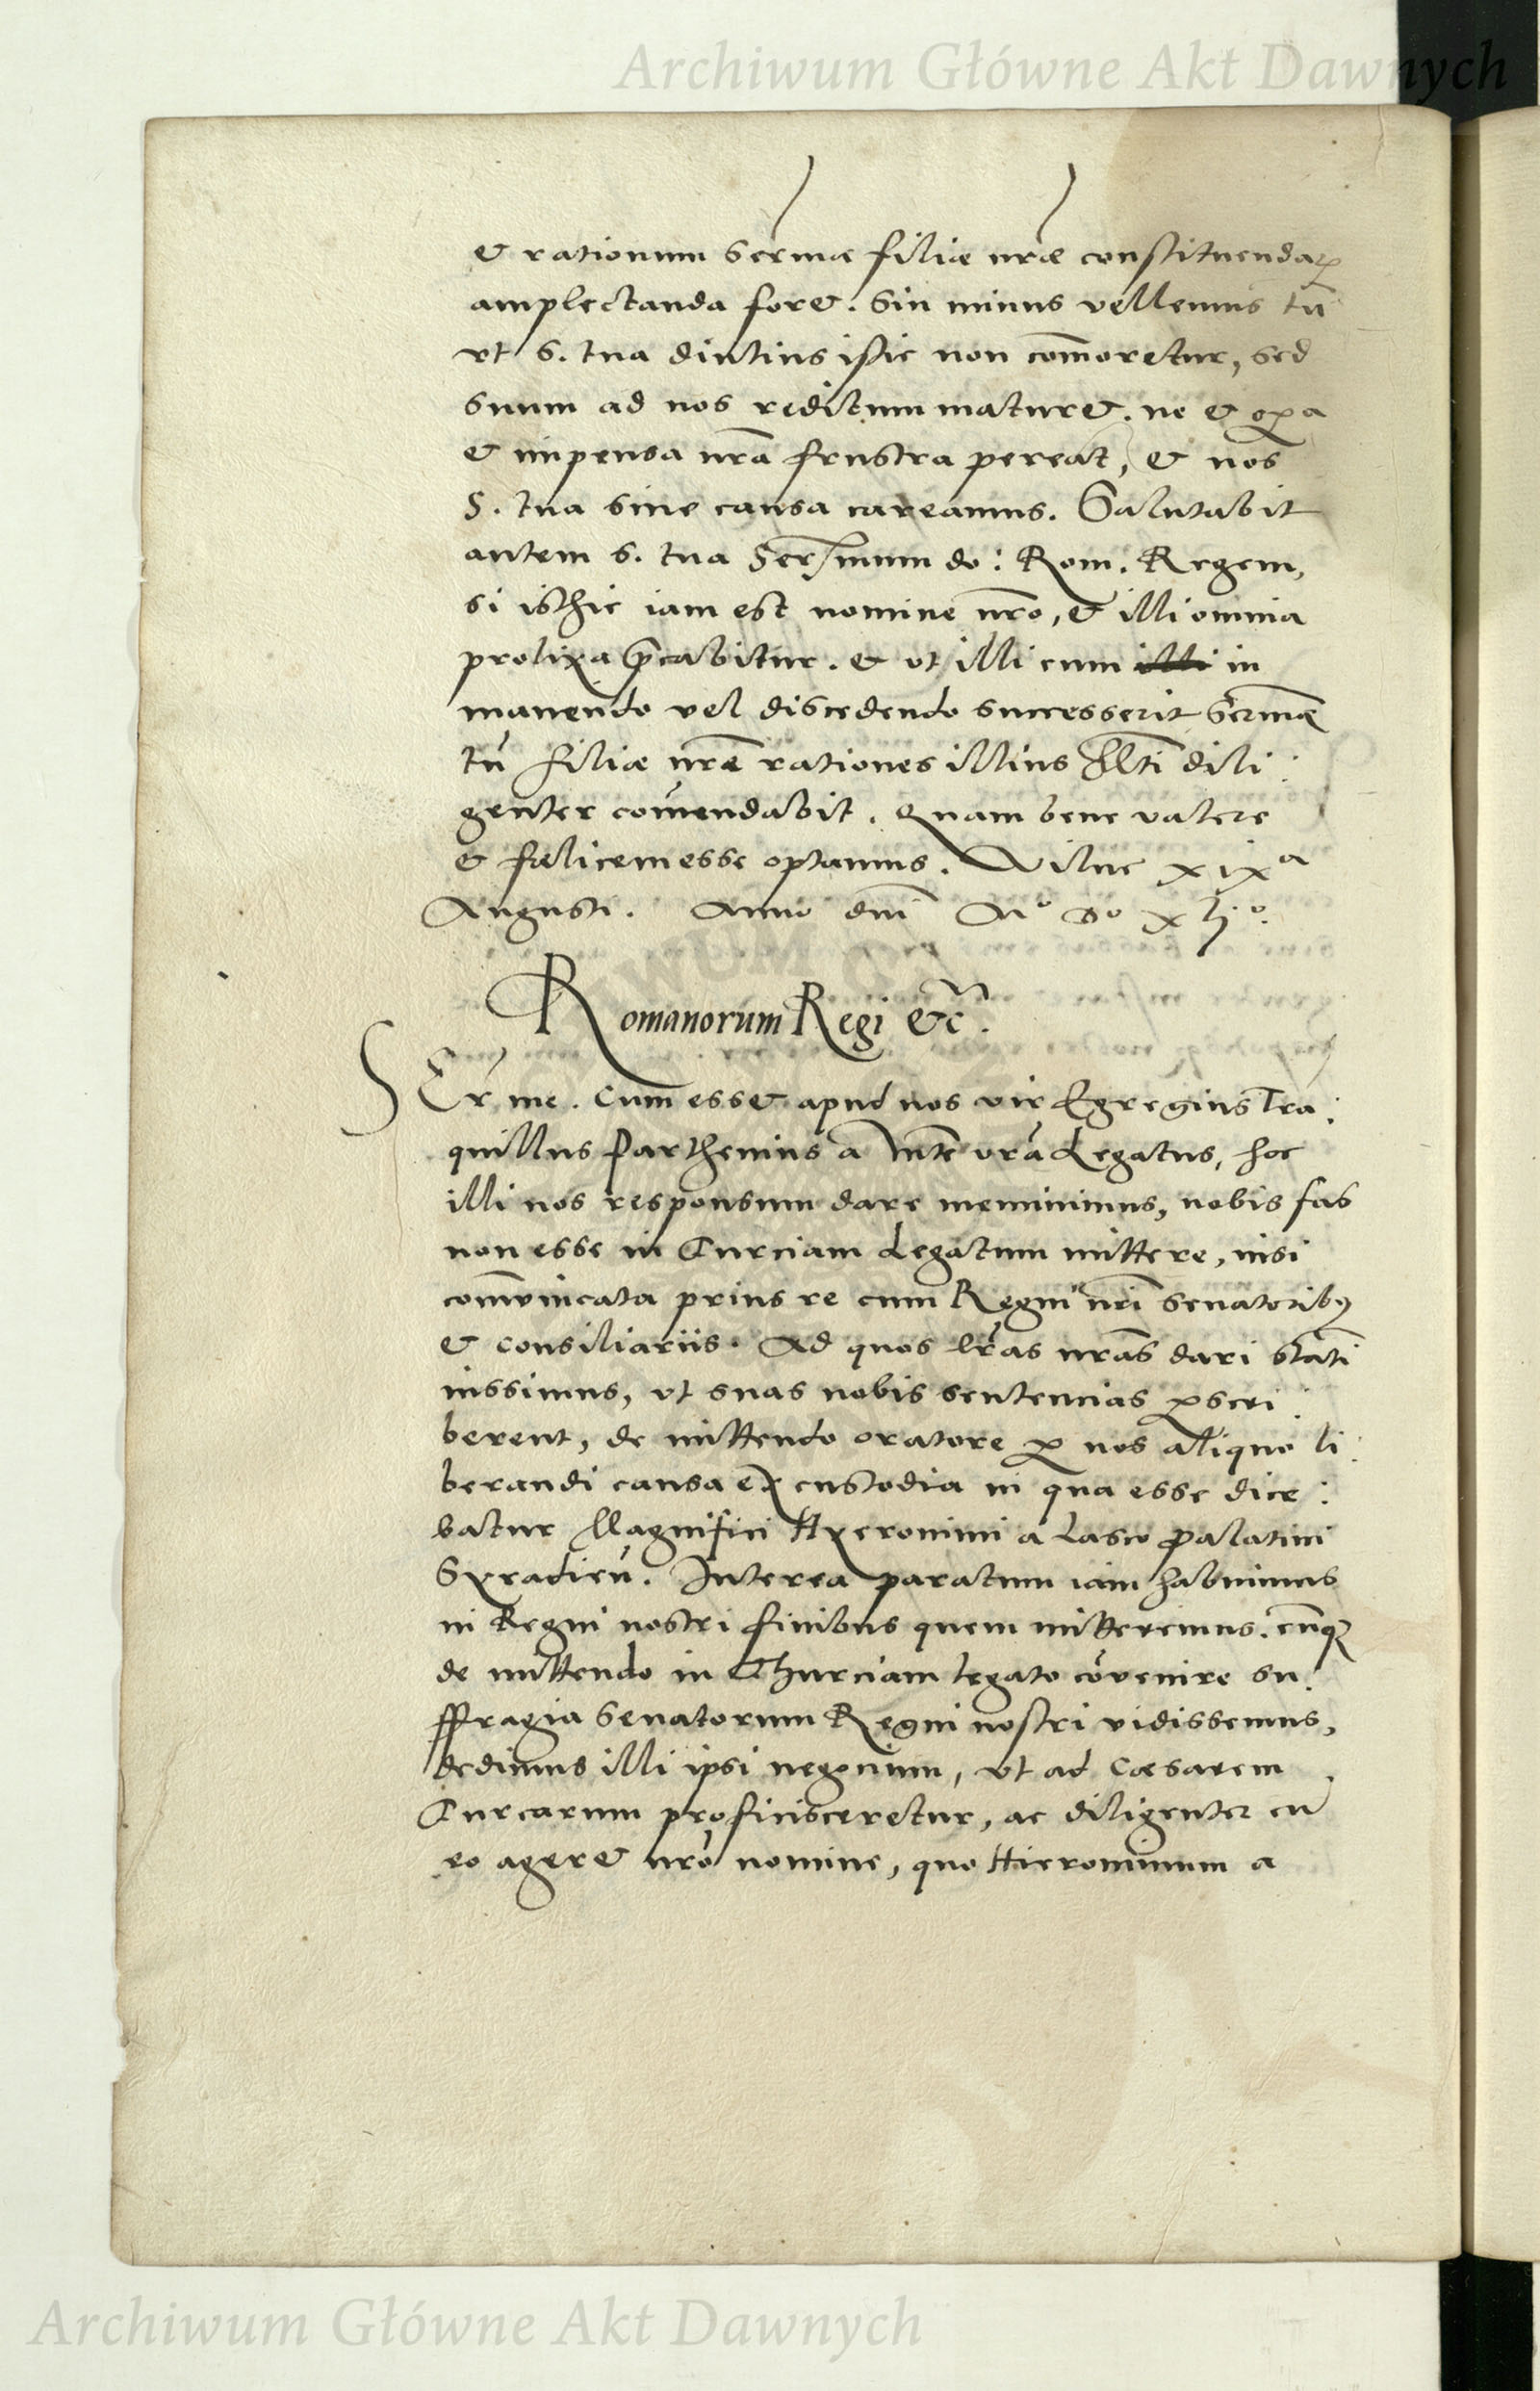 Archiwum Główne Akt Dawnych
& rationum Sermae filiae nrae constituendaꝝ
amplectanda foret. Sin minus vellemus tn̄
vt S. tua diutius istic non com̄oretur, sed
suum ad nos reditum maturet. ne & oꝑa
& impensa nr̄a frustra pereāt, & nos
S. tua sine causa careamus. Salutabit
autem S. tua Serssmum do: Rom. Regem,
si isthic iam est nomine nr̄o, & illi omnia
prolixa p̄cabitur. & vt illi cum illi in
manendo vel discedendo successerit Sermae
tn̄ filiae nr̄e rationes illius Mti dili:
genter com̄endabit. Quam bene valere
& foelicem esse optamus. Vilne xixa
Augusti. Anno dni Mo Do xljo.
Romanorum Regi &c.
SEr me. Cum esset apud nos vir Egregius Tra:
quillus Parthenius a Mte vr̄a Legatus, hoc
illi nos responsum dare meminimus, nobis fas
non esse in Turciam Legatum mittere, nisi
com̄unicata prius re cum Regni nr̄i Senatoribꝰ
& consiliariis. Ad quos lr̄as nr̄as dari stati
iussimus, vt suas nobis sententias ꝑscri:
berent, de mittendo oratore ꝑ nos aliquo li:
berandi causa ex custodia in qua esse dice:
batur Magnifici Hyeronimi a Lasco Palatini
Syradien̄. Interea paratum iam habuimus
in Regni nostri finibus quem mitteremus. cūqꝫ
de mittendo in Thurciam legato cōvenire su:
ffragia Senatorum Regni nostri vidissemus,
dedimus illi ipsi negotium, vt ad Caesarem
Turcarum proficisceretur, ac diligenter cū
eo ageret nr̄o nomine, quo Hieronimum a
Archiwum Główne Akt Dawnych